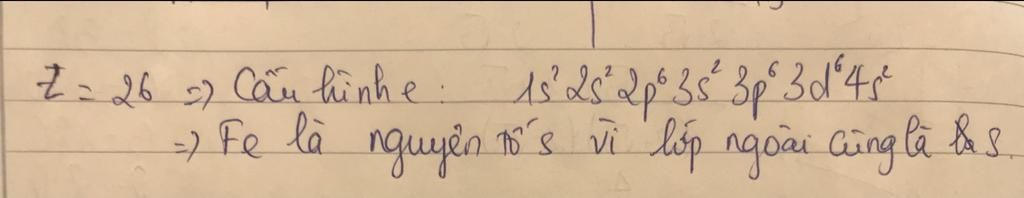 Z = 26 => Cấu hình e: 1s² 2s² 2p⁶ 3s² 3p⁶ 3d⁶ 4s²
=> Fe là nguyên tố s vì lớp ngoài cùng là s.